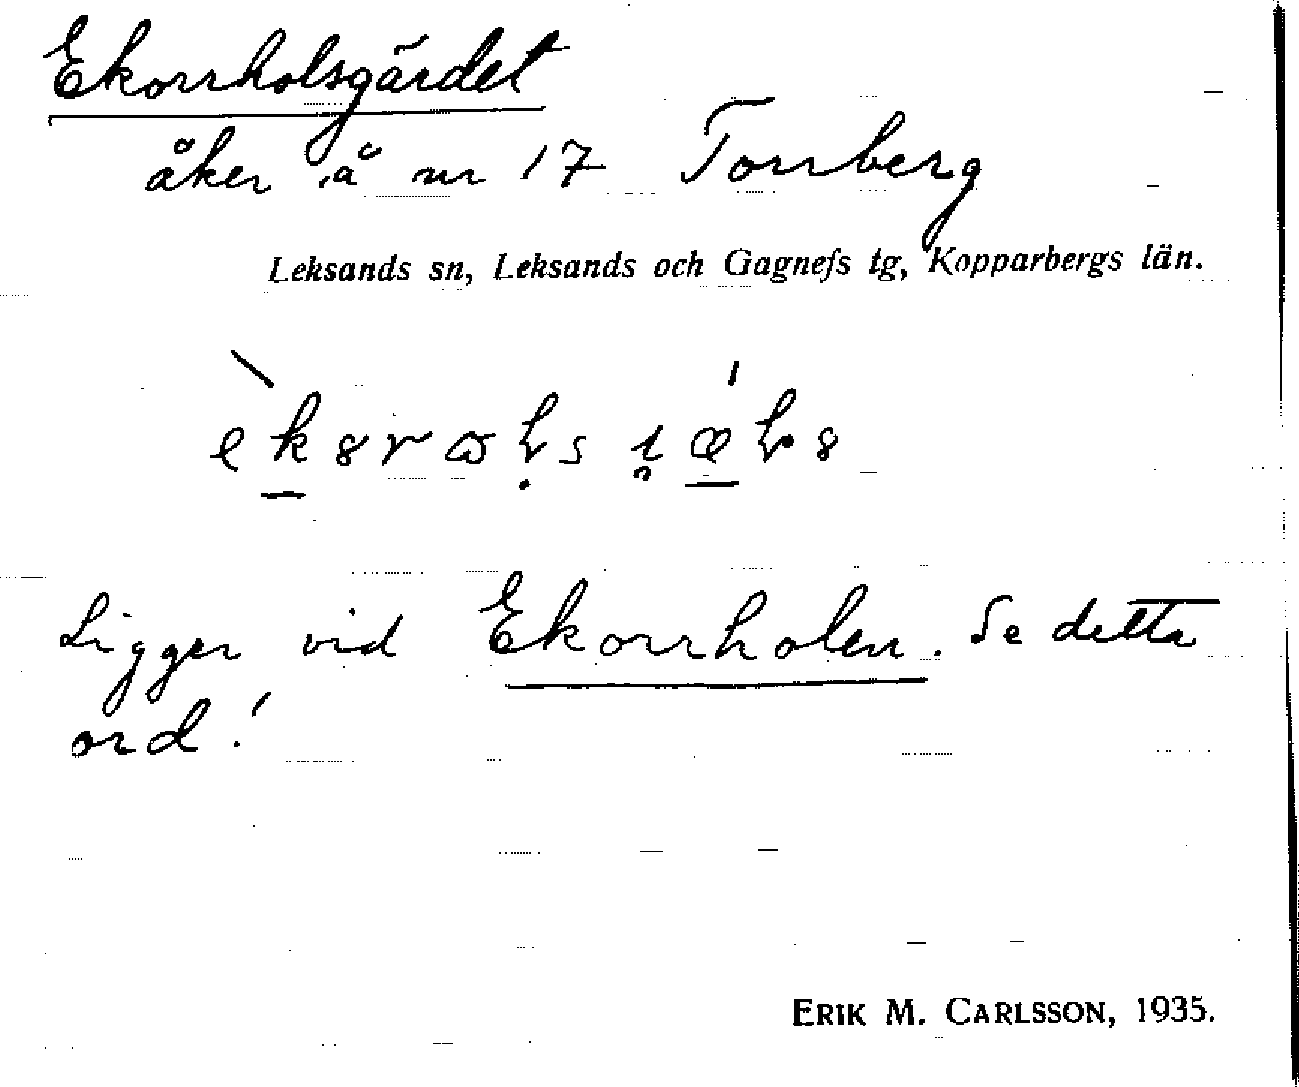 Ekorrholsgärdet
åker å nr 17 Torrberg
Leksands sn, Leksands och Gagnefs tg, Kopparbergs län.
Ligger vid Ekorrholen. Se detta
ord!
ERIK M. CARLSSON, 1935.